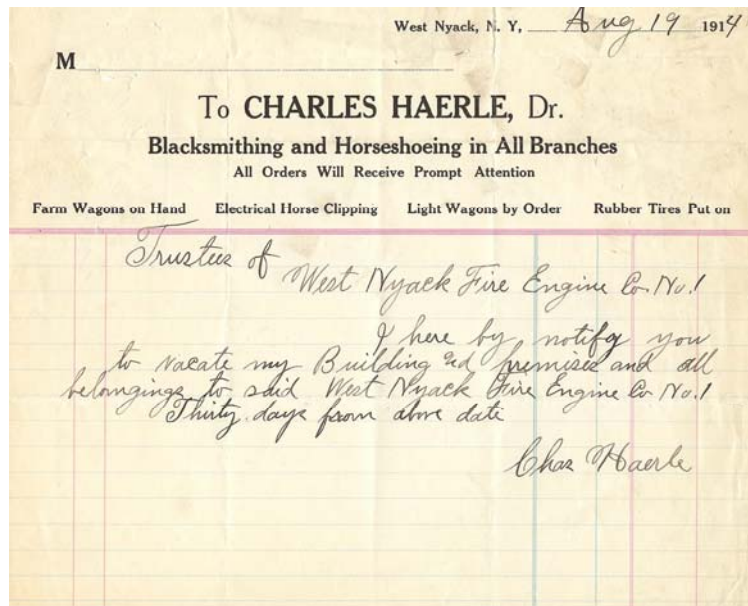 West Nyack, N. Y, Aug 19 1914
M
To CHARLES HAERLE, Dr.
Blacksmithing and Horseshoeing in All Branches
All Orders Will Receive Prompt Attention
Farm Wagons on Hand Electrical Horse Clipping Light Wagons by Order Rubber Tires Put on
Trustees of
West Nyack Fire Engine Co No. 1
I here by notify you
to vacate my Building and premises and all
belongings to said West Nyack Fire Engine Co No. 1
Thirty days from above date
Chas Haerle